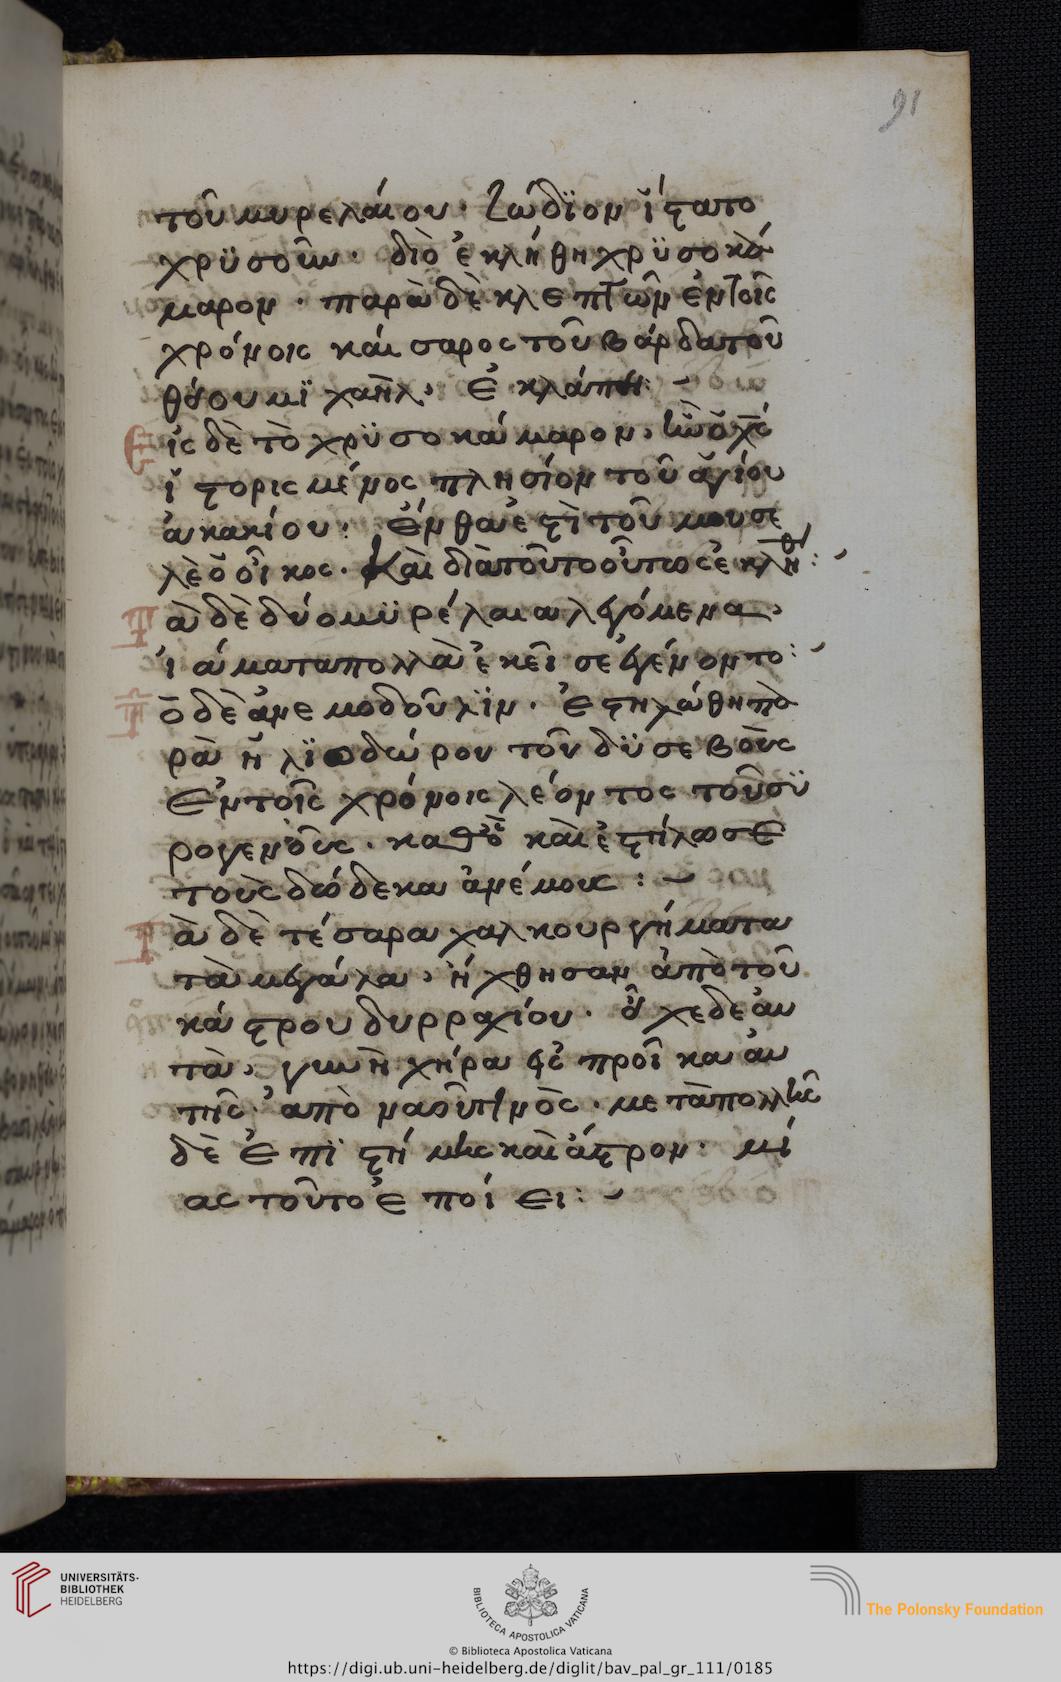 91
τοῦ μυρελαίου· ζώδϊον ἵστατο
χρϋσοῦν· διὸ ἐκλήθη χρϋσοκά
μαρον· παρὰ δὲ κλεπτῶν ἐν τοῖς
χρόνοις καίσαρος τοῦ βάρδα τοῦ
θείου μϊχαὴλ, ἐκλάπη:
Εἰς δὲ τὸ χρϋσοκάμαρον,
ἱστορισμένος πλησίον τοῦ ἁγίου
ἀκακίου: ἔνθα ἐστὶ τοῦ μουσε
λὲ ὁ οἶκος· Καὶ διὰ τοῦτο οὕτως ἐκλήθ:
Τὰ δὲ δύο μϋρέλαια λεγόμενα,
ἰάματα πολλὰ ἐκεῖσε ἐγένοντο:
Τὸ δὲ ἀνεμοδοῦλϊν· ἐστηλώθη πα
ρὰ ἡλϊοδώρου τοῦ δϋσεβοῦς
ἐν τοῖς χρόνοις λέοντος τοῦ σϋ
ρογενοῦς· καθὸ καὶ ἐστήλωσε
τοὺς δώδεκα ἀνέμους:
Τὰ δὲ τέσαρα χαλκουργήματα
τὰ μεγάλα, ἤχθησαν ἀπὸ τοῦ
κάστρου δυρραχίου· εἶχε δὲ αὐ
τὰ, γυνὴ χήρα εἰς προῖκα αὐ
τῆς· ἀπὸ ναυτϊνὸς· μετὰ πολλῆς
δὲ ἐπϊστήμης καὶ ἄστρον· μί
ας τοῦτο ἐποίει:
UNIVERSITÄTS-
BIBLIOTHEK
HEIDELBERG
BIBLIOTECA APOSTOLICA VATICANA
The Polonsky Foundation
© Biblioteca Apostolica Vaticana
https://digi.ub.uni-heidelberg.de/diglit/bav_pal_gr_111/0185